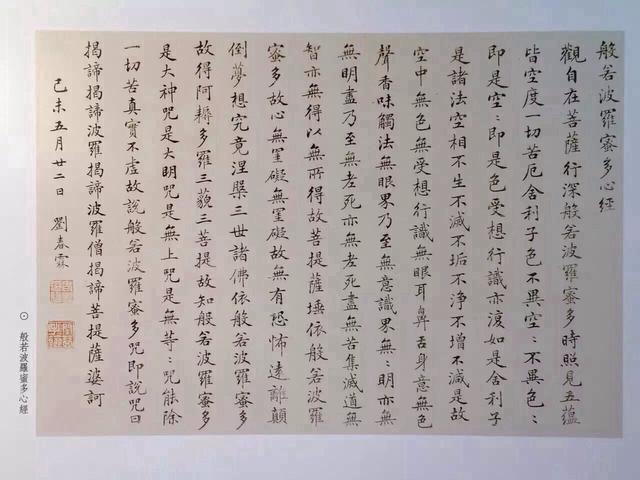 般若波羅蜜多心經
觀自在菩薩行深般若波羅蜜多時照見五蘊
皆空度一切苦厄舍利子色不異空〻不異色〻
即是空〻即是色受想行識亦復如是舍利子
是諸法空相不生不滅不垢不淨不增不減是故
空中無色無受想行識無眼耳鼻舌身意無色
聲香味觸法無眼界乃至無意識界無〻明亦無
無明盡乃至無老死亦無老死盡無苦集滅道無
智亦無得以無所得故菩提薩埵依般若波羅
蜜多故心無罣礙無罣礙故無有恐怖遠離顛
倒夢想究竟涅槃三世諸佛依般若波羅蜜多
故得阿耨多羅三藐三菩提故知般若波羅蜜多
是大神咒是大明咒是無上咒是無等〻咒能除
一切苦真實不虛故說般若波羅蜜多咒即說咒曰
揭諦揭諦波羅揭諦波羅僧揭諦菩提薩婆訶
己未五月廿二日 劉春霖
⊙ 般若波羅蜜多心經